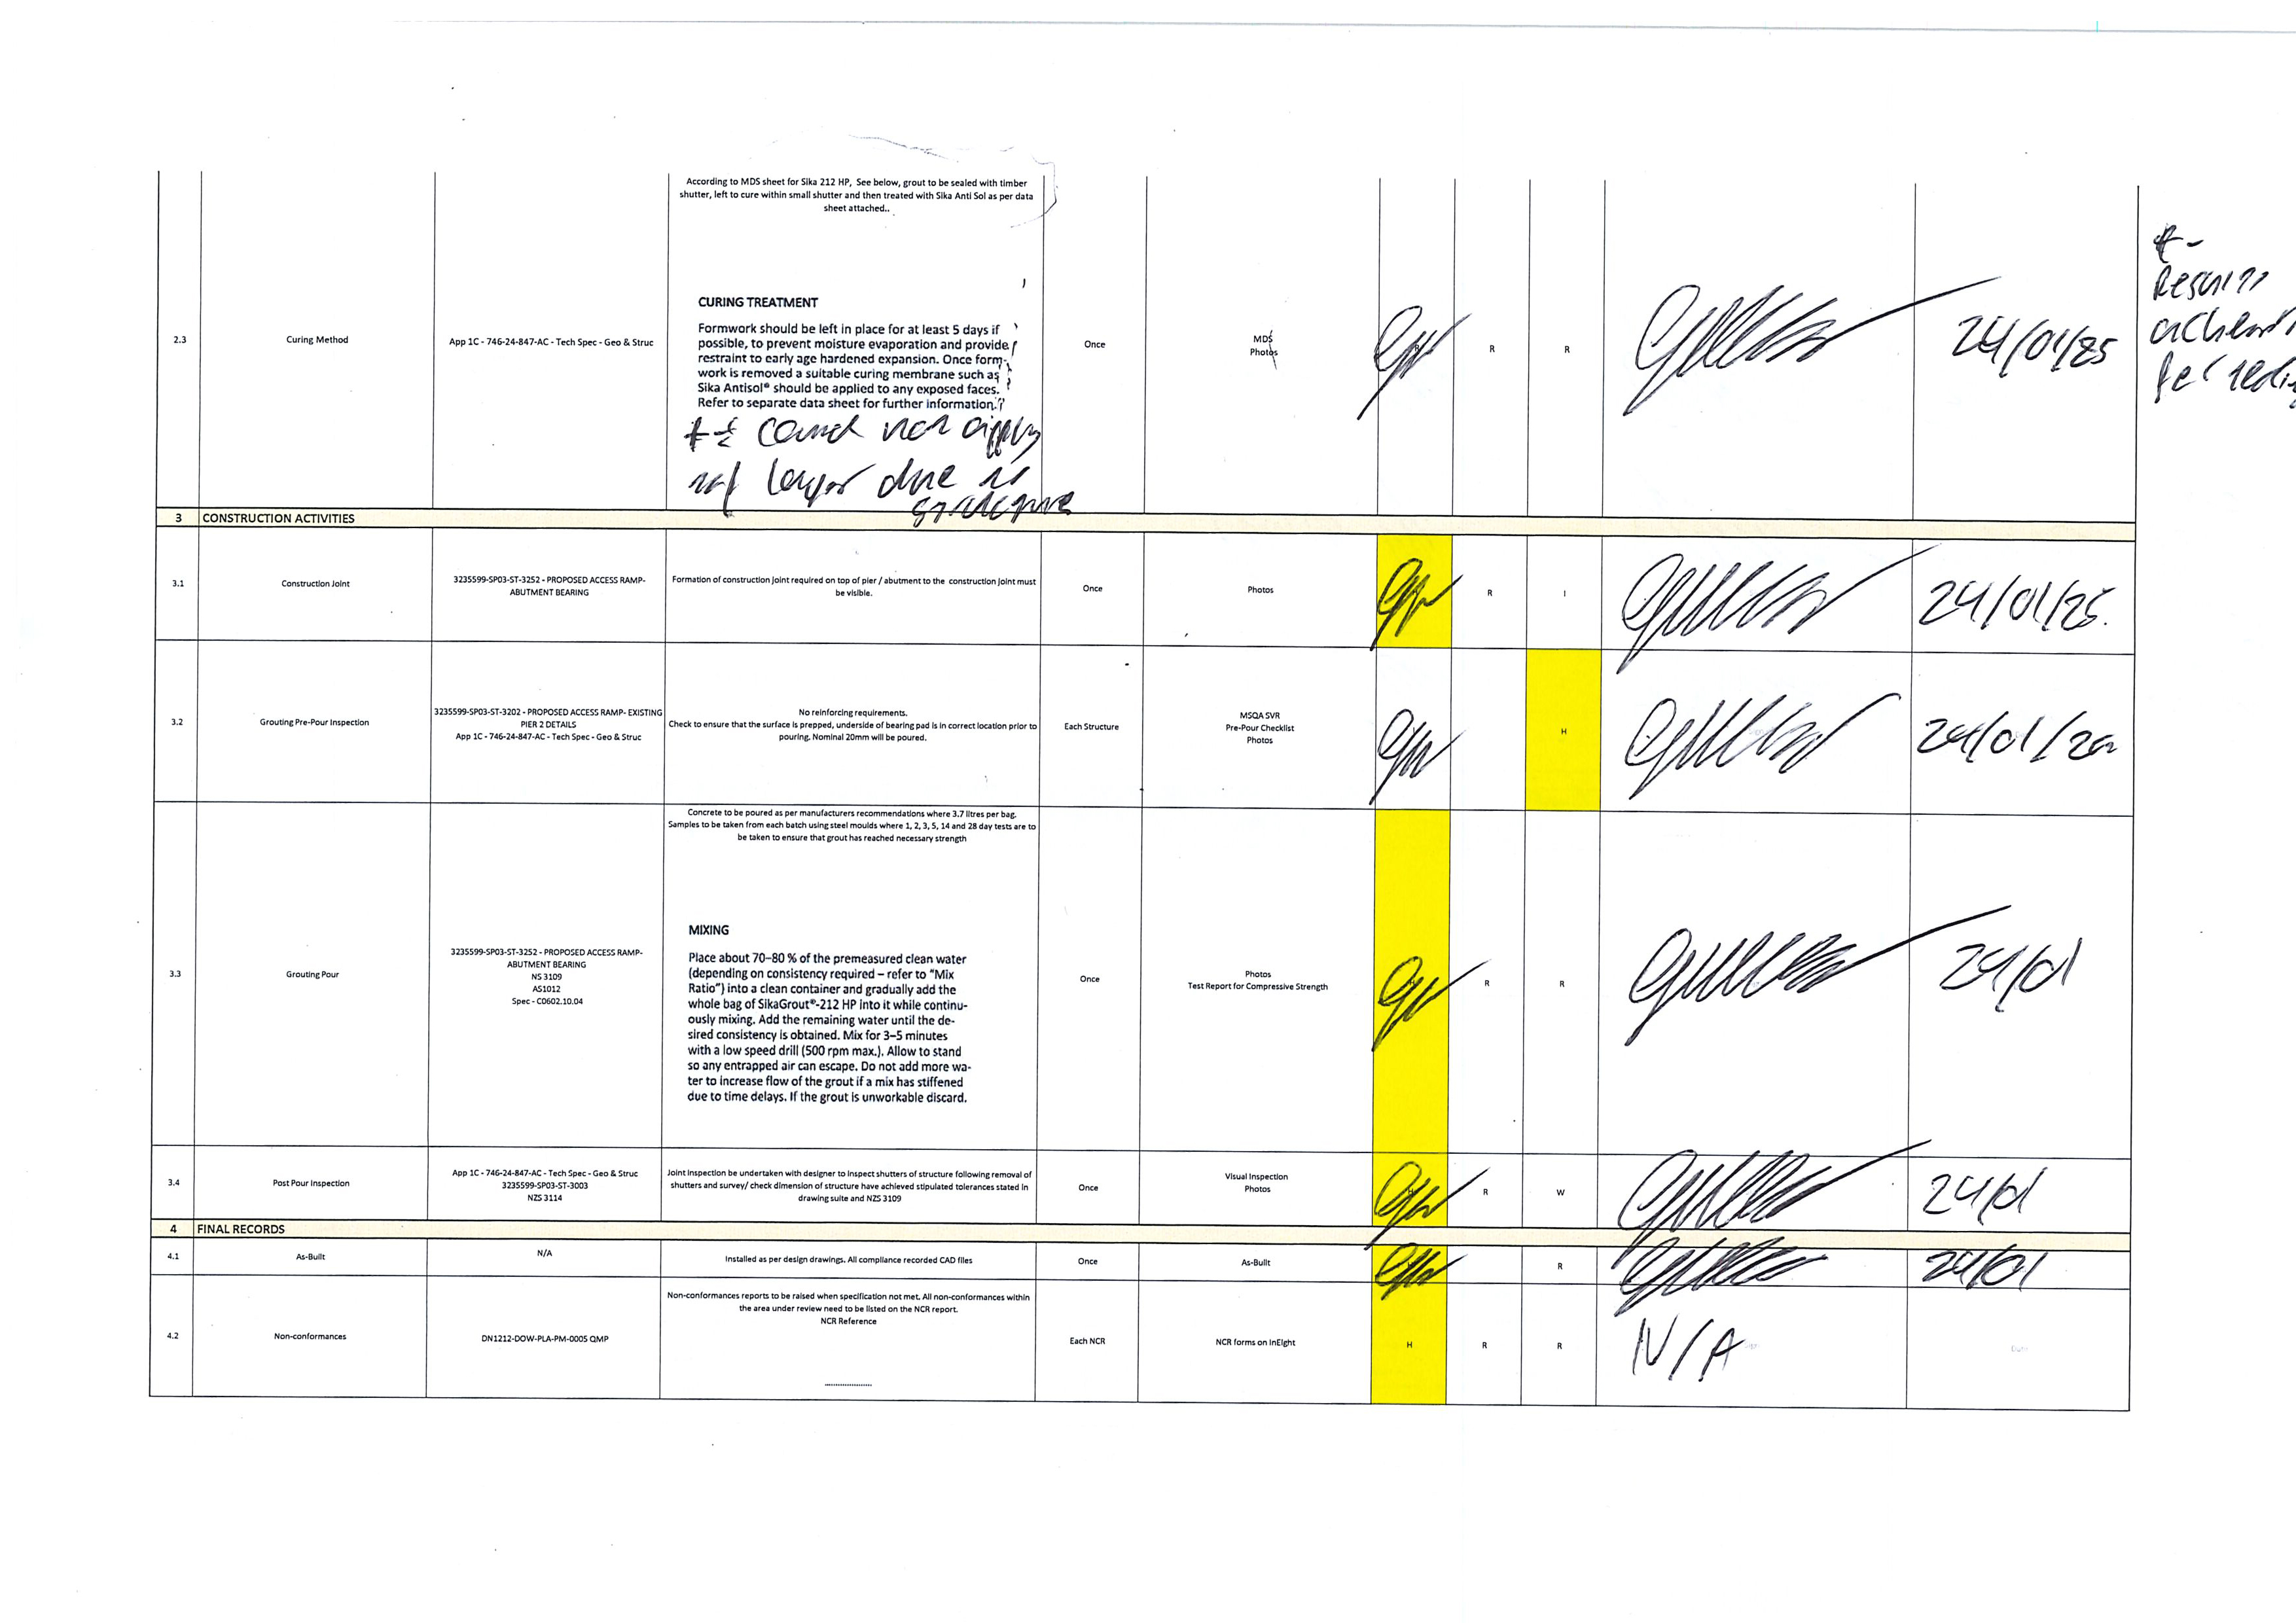 According to MDS sheet for Sika 212 HP, See below, grout to be sealed with timber
shutter, left to cure within small shutter and then treated with Sika Anti Sol as per data
sheet attached..
CURING TREATMENT
Formwork should be left in place for at least 5 days if
possible, to prevent moisture evaporation and provide
restraint to early age hardened expansion. Once form-
work is removed a suitable curing membrane such as
Sika Antisol® should be applied to any exposed faces.
Refer to separate data sheet for further information.
2.3
Curing Method
App 1C - 746-24-847-AC - Tech Spec - Geo & Struc
Once
MDS
Photos
R
R
24/01/25
could not apply
longer due
3 CONSTRUCTION ACTIVITIES
3.1
Construction Joint
3235599-SP03-ST-3252 - PROPOSED ACCESS RAMP-
ABUTMENT BEARING
Formation of construction joint required on top of pier / abutment to the construction joint must
be visible.
Once
Photos
R
I
24/01/25.
3.2
Grouting Pre-Pour Inspection
3235599-SP03-ST-3202 - PROPOSED ACCESS RAMP- EXISTING
PIER 2 DETAILS
App 1C - 746-24-847-AC - Tech Spec - Geo & Struc
No reinforcing requirements.
Check to ensure that the surface is prepped, underside of bearing pad is in correct location prior to
pouring. Nominal 20mm will be poured.
Each Structure
MSQA SVR
Pre-Pour Checklist
Photos
H
3.3
Grouting Pour
3235599-SP03-ST-3252 - PROPOSED ACCESS RAMP-
ABUTMENT BEARING
NS 3109
AS1012
Spec - C0602.10.04
Concrete to be poured as per manufacturers recommendations where 3.7 litres per bag.
Samples to be taken from each batch using steel moulds where 1, 2, 3, 5, 14 and 28 day tests are to
be taken to ensure that grout has reached necessary strength
MIXING
Place about 70–80 % of the premeasured clean water
(depending on consistency required – refer to “Mix
Ratio”) into a clean container and gradually add the
whole bag of SikaGrout®-212 HP into it while continu-
ously mixing. Add the remaining water until the de-
sired consistency is obtained. Mix for 3–5 minutes
with a low speed drill (500 rpm max.). Allow to stand
so any entrapped air can escape. Do not add more wa-
ter to increase flow of the grout if a mix has stiffened
due to time delays. If the grout is unworkable discard.
Once
Photos
Test Report for Compressive Strength
R
R
24/01
3.4
Post Pour Inspection
App 1C - 746-24-847-AC - Tech Spec - Geo & Struc
3235599-SP03-ST-3003
NZS 3114
Joint inspection be undertaken with designer to inspect shutters of structure following removal of
shutters and survey/ check dimension of structure have achieved stipulated tolerances stated in
drawing suite and NZS 3109
Once
Visual Inspection
Photos
R
W
24/01
4 FINAL RECORDS
4.1
As-Built
N/A
Installed as per design drawings. All compliance recorded CAD files
Once
As-Built
R
24/01
4.2
Non-conformances
DN1212-DOW-PLA-PM-0005 QMP
Non-conformances reports to be raised when specification not met. All non-conformances within
the area under review need to be listed on the NCR report.
NCR Reference
....................
Each NCR
NCR forms on InEight
H
R
R
N/A
Date